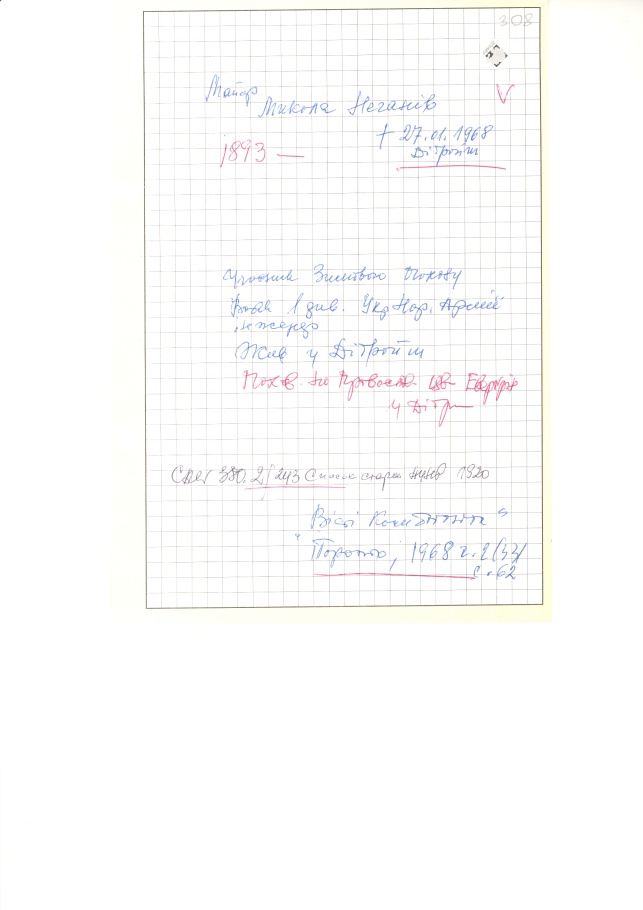 308
Майор
Микола Неганів
V
† 27.01.1968
Дітройт
1893 —
Учасник Зимового Походу
Вояк 1 див. Укр Нар. Армії
Жив у Дітройті
Похов. на Православ. цв.
у Дітр
380.2/243 Список старш 1920
"Вісті Комбатанта"
Торонто, 1968 ч. 2(32)
с. 62